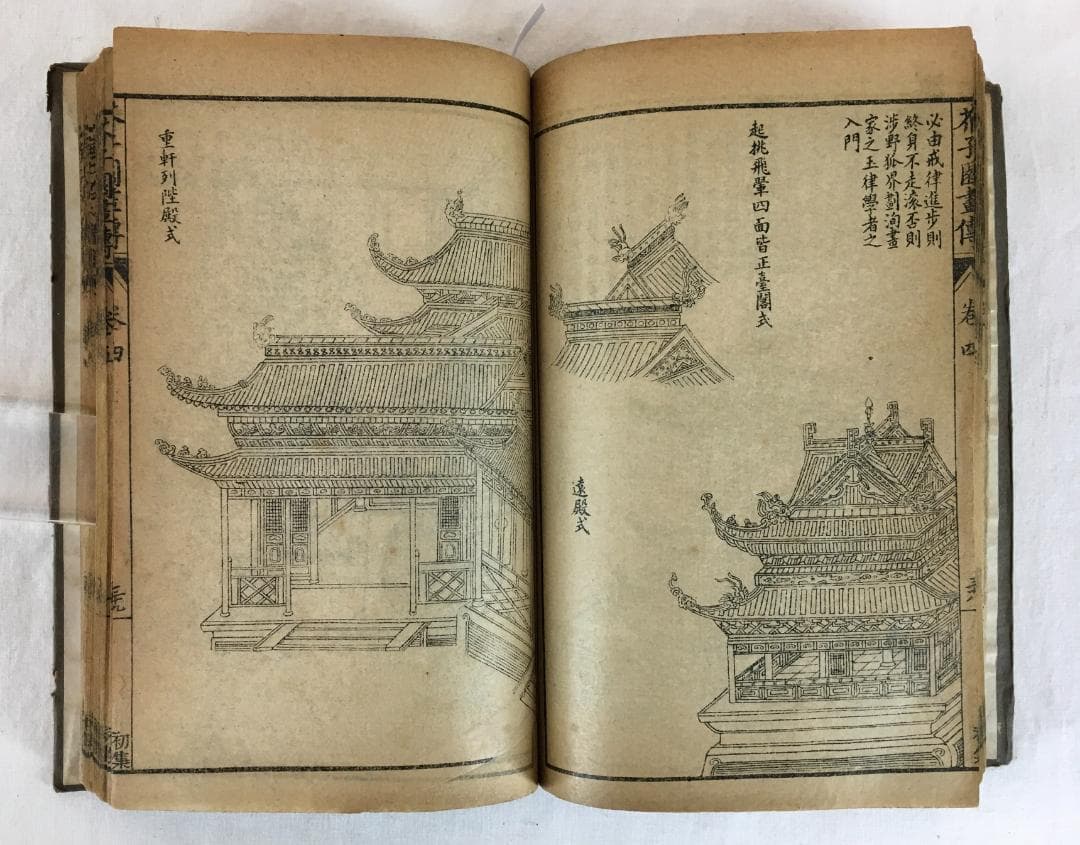 芥子園畫傳
卷四
必由戒律進步則
終身不走滾否則
涉野狐界劃洵畫
家之玉律學者之
入門
起挑飛翬四面皆正臺閣式
遠殿式
重軒列陛殿式
芥子園畫傳
卷四
初集